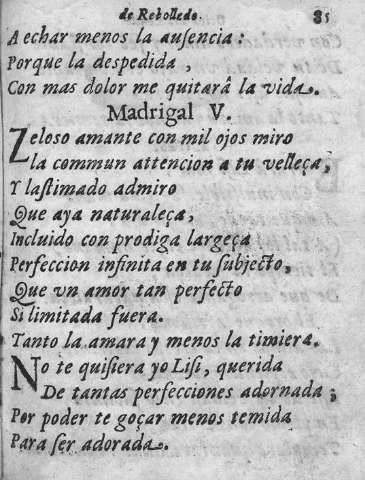 de Rebolledo. 85
A echar menos la ausencia:
Porque la despedida,
Con mas dolor me quitarâ la vida.
Madrigal V.
Zeloso amante con mil ojos miro
la commun attencion a tu velleça,
Y lastimado admiro
Que aya naturaleça,
Incluido con prodiga largeça
Perfeccion infinita en tu subjecto,
Que vn amor tan perfecto
Si limitada fuera.
Tanto la amara y menos la timiera.
No te quisiera yo Lisi, querida
De tantas perfecciones adornada;
Por poder te goçar menos temida
Para ser adorada.